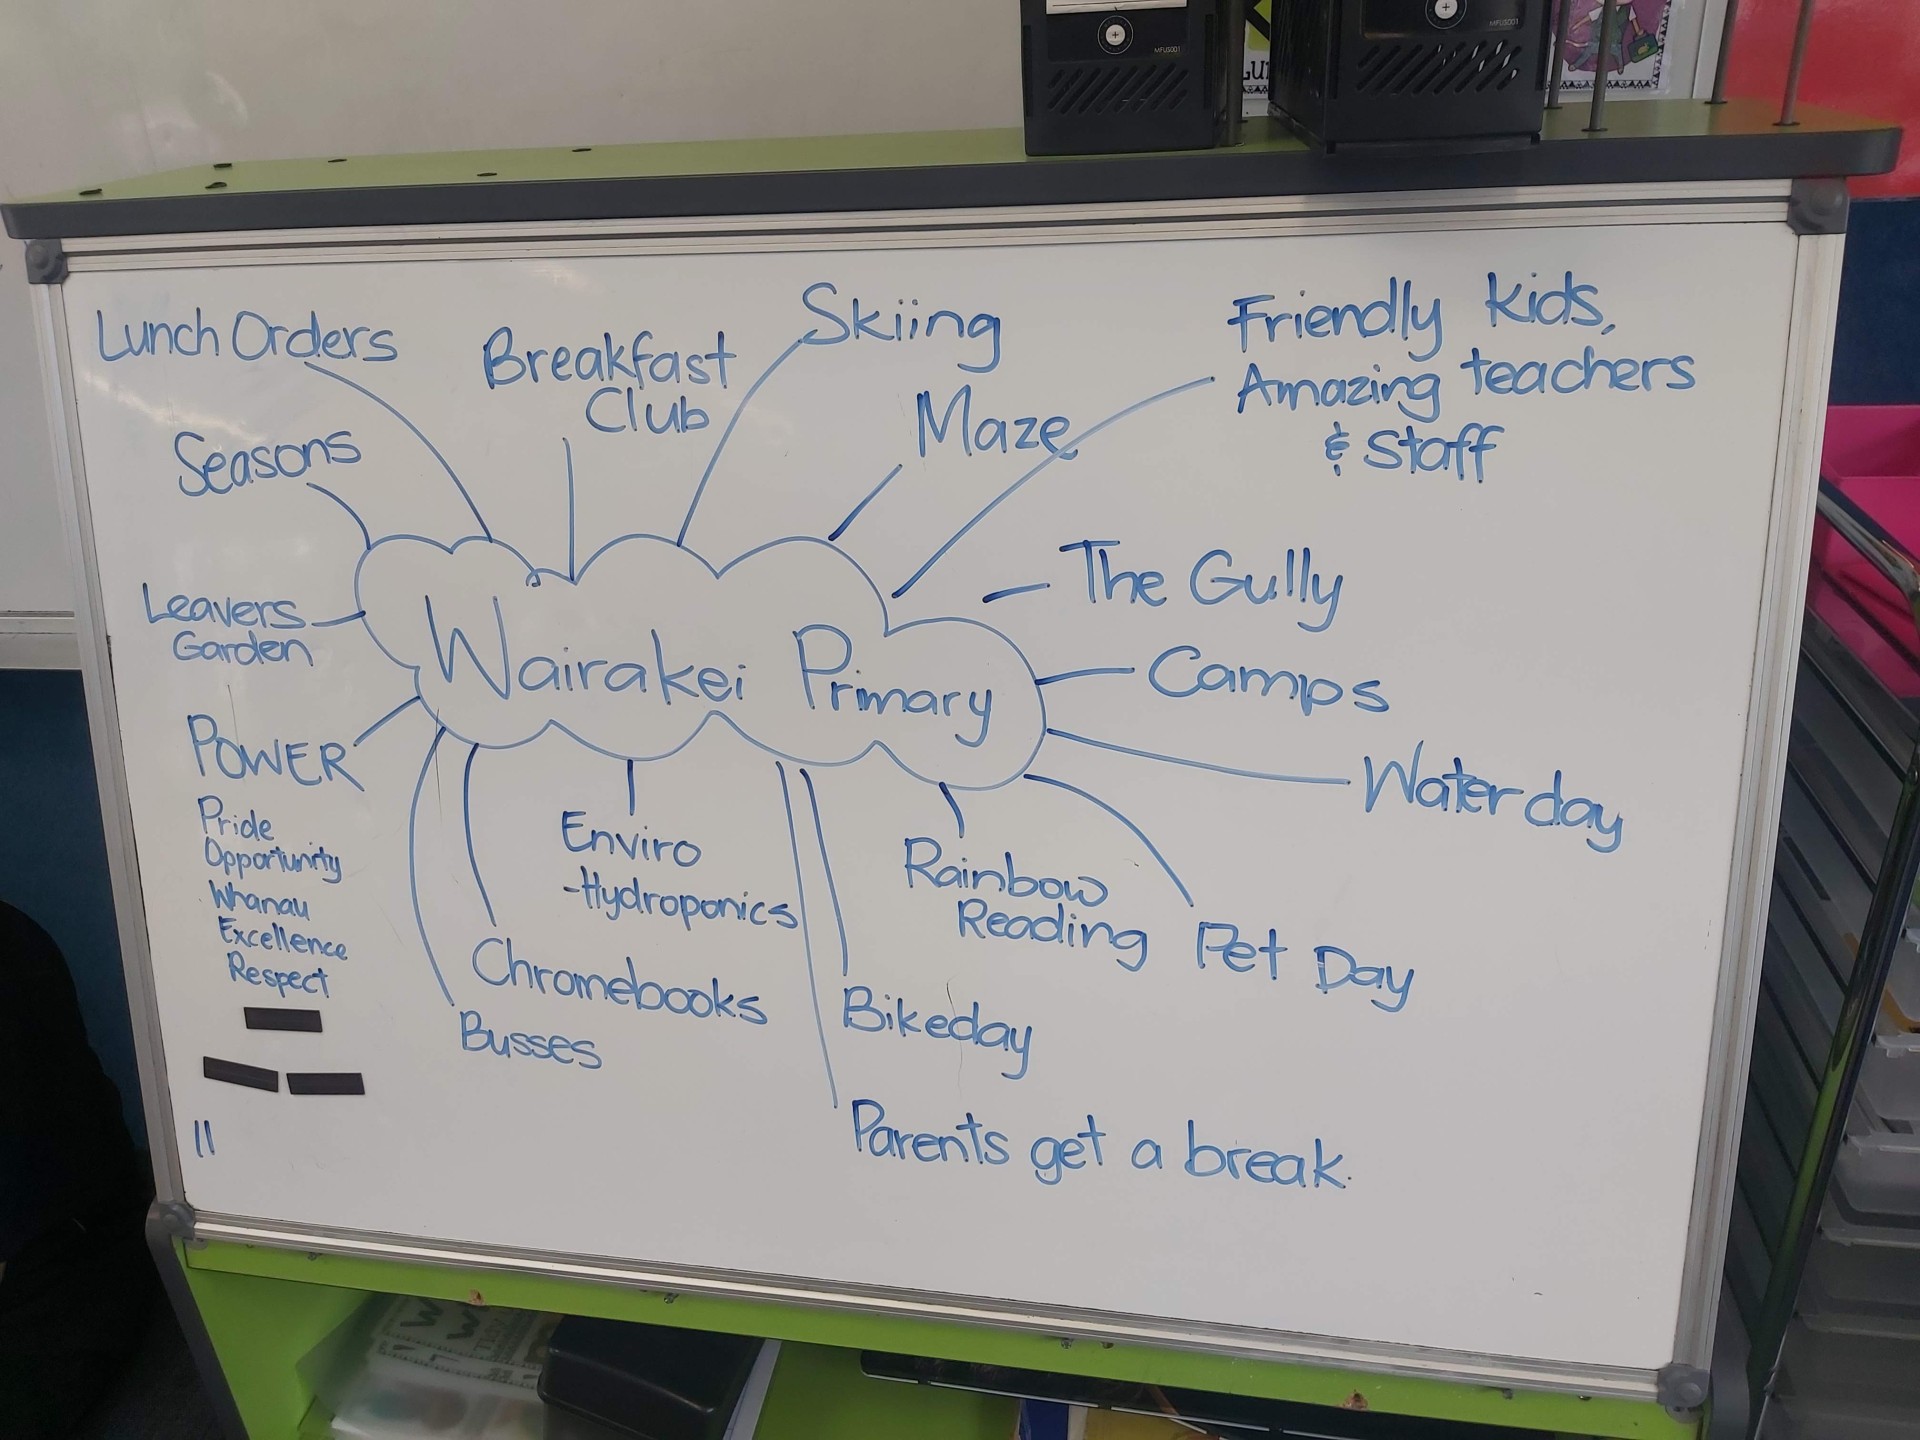 MFUS001
MFUS001
Lunch Orders
Breakfast
Club
Skiing
Maze
Friendly kids,
Amazing teachers
& Staff
Seasons
The Gully
Leavers
Garden
Wairakei Primary
Camps
Water day
POWER
Pride
Opportunity
Whanau
Excellence
Respect
Enviro
-Hydroponics
Rainbow
Reading
Pet Day
Chromebooks
Busses
Bikeday
Parents get a break.
11